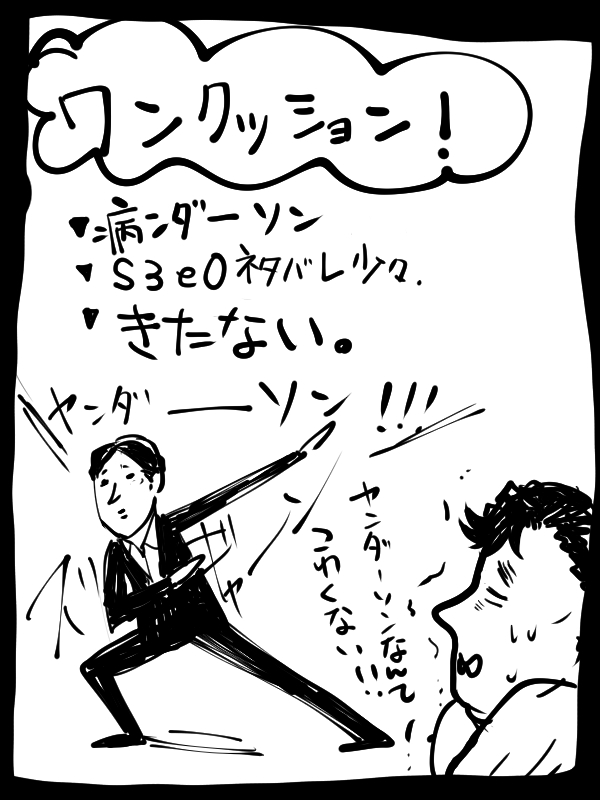 ワンクッション!
▼病ンダーソン
▼S3e0ネタバレ少々.
▼きたない。
ヤンダーソン!!!
ズ
ギュン
ヤンダーソンなんて
こわくない!!